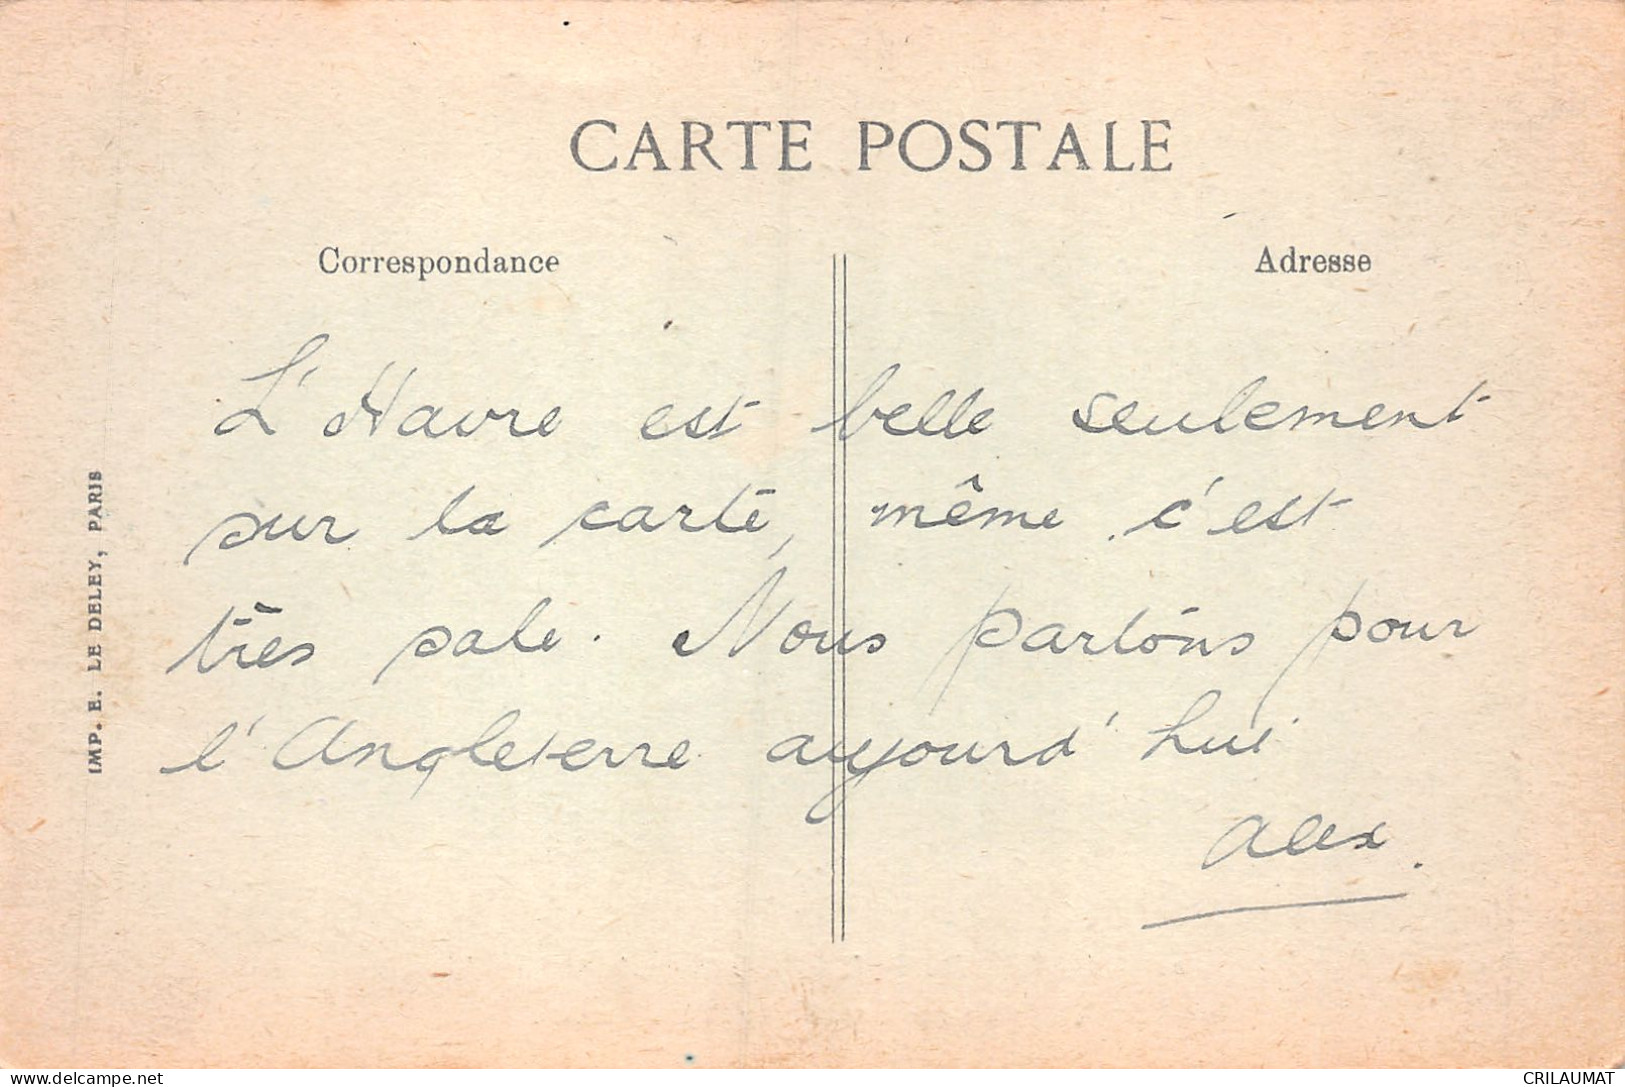 CARTE POSTALE
Correspondance
Adresse
L'Havre est belle seulement
sur la carte, même c'est
très sale. Nous partons pour
l'Angleterre aujourd'hui
Alex.
IMP. E. LE DELEY, PARIS
delcampe.net
CRILAUMAT